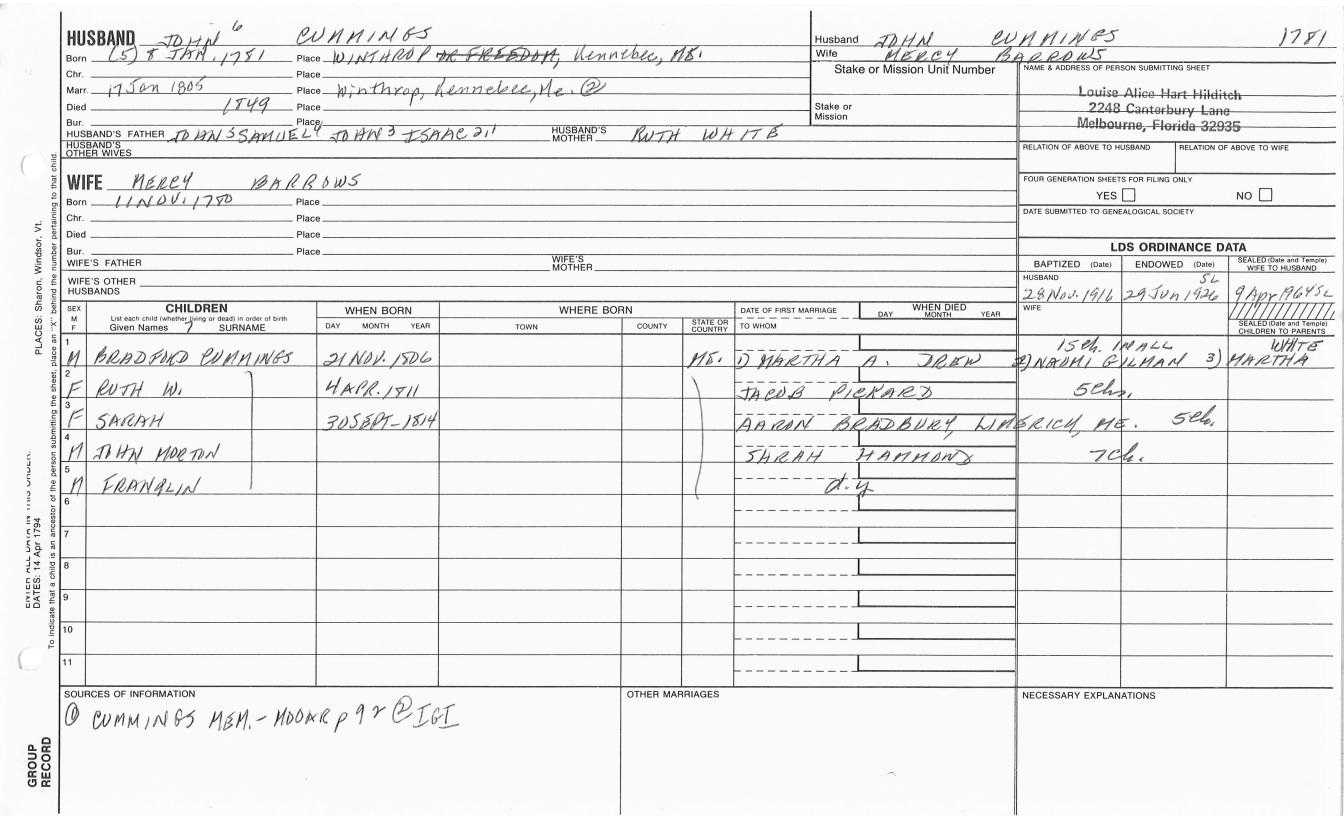 HUSBAND JOHN 6 CUMMINGS
Born (5) 8 JAN, 1781 Place WINTHROP OR FREEDOM, Kennebec, ME.
Chr. Place
Marr. 17 Jan 1805 Place Winthrop, Kennebec, Me. ②
Died 1849 Place
Bur. Place
HUSBAND'S FATHER JOHN 5 SAMUEL 4 JOHN 3 ISAAC 2,1 HUSBAND'S MOTHER RUTH WHITE
HUSBAND'S OTHER WIVES
WIFE MERCY BARROWS
Born 11 NOV. 1780 Place
Chr. Place
Died Place
Bur. Place
WIFE'S FATHER WIFE'S MOTHER
WIFE'S OTHER HUSBANDS
Husband JOHN CUMMINGS 1781
Wife MERCY BARROWS
Stake or Mission Unit Number
Stake or Mission
NAME & ADDRESS OF PERSON SUBMITTING SHEET
Louise Alice Hart Hilditch
2248 Canterbury Lane
Melbourne, Florida 32935
RELATION OF ABOVE TO HUSBAND RELATION OF ABOVE TO WIFE
FOUR GENERATION SHEETS FOR FILING ONLY
YES NO
DATE SUBMITTED TO GENEALOGICAL SOCIETY
LDS ORDINANCE DATA
BAPTIZED (Date) ENDOWED (Date) SEALED (Date and Temple) WIFE TO HUSBAND
HUSBAND SL
28 Nov. 1916 29 Jun 1926 9 Apr 1964 SL
WIFE
SEALED (Date and Temple) CHILDREN TO PARENTS
SEX M F CHILDREN WHEN BORN WHERE BORN DATE OF FIRST MARRIAGE WHEN DIED
List each child (whether living or dead) in order of birth DAY MONTH YEAR
Given Names 7 SURNAME DAY MONTH YEAR TOWN COUNTY STATE OR COUNTRY TO WHOM
15 ch. IN ALL WHITE
1 M BRADFORD CUMMINGS 21 NOV. 1806 ME. 1) MARTHA A. DREW 2) NAOMI GILMAN 3) MARTHA
2 F RUTH W. 4 APR. 1811 JACOB PICKARD 5 chs.
3 F SARAH 30 SEPT-1814 AARON BRADBURY, LIMERICK, ME. 5 ch.
4 M JOHN MORTON SARAH HAMMOND 7 ch.
5 M FRANQLIN d.y
6
7
8
9
10
11
SOURCES OF INFORMATION
① CUMMINGS MEM. - MOOAR p 92 ② IGI
OTHER MARRIAGES
NECESSARY EXPLANATIONS
PLACES: Sharon, Windsor, Vt.
ENTER ALL DATA IN THIS ORDER:
DATES: 14 Apr 1794
To indicate that a child is an ancestor of the person submitting the sheet, place an "X" behind the number pertaining to that child.
GROUP RECORD